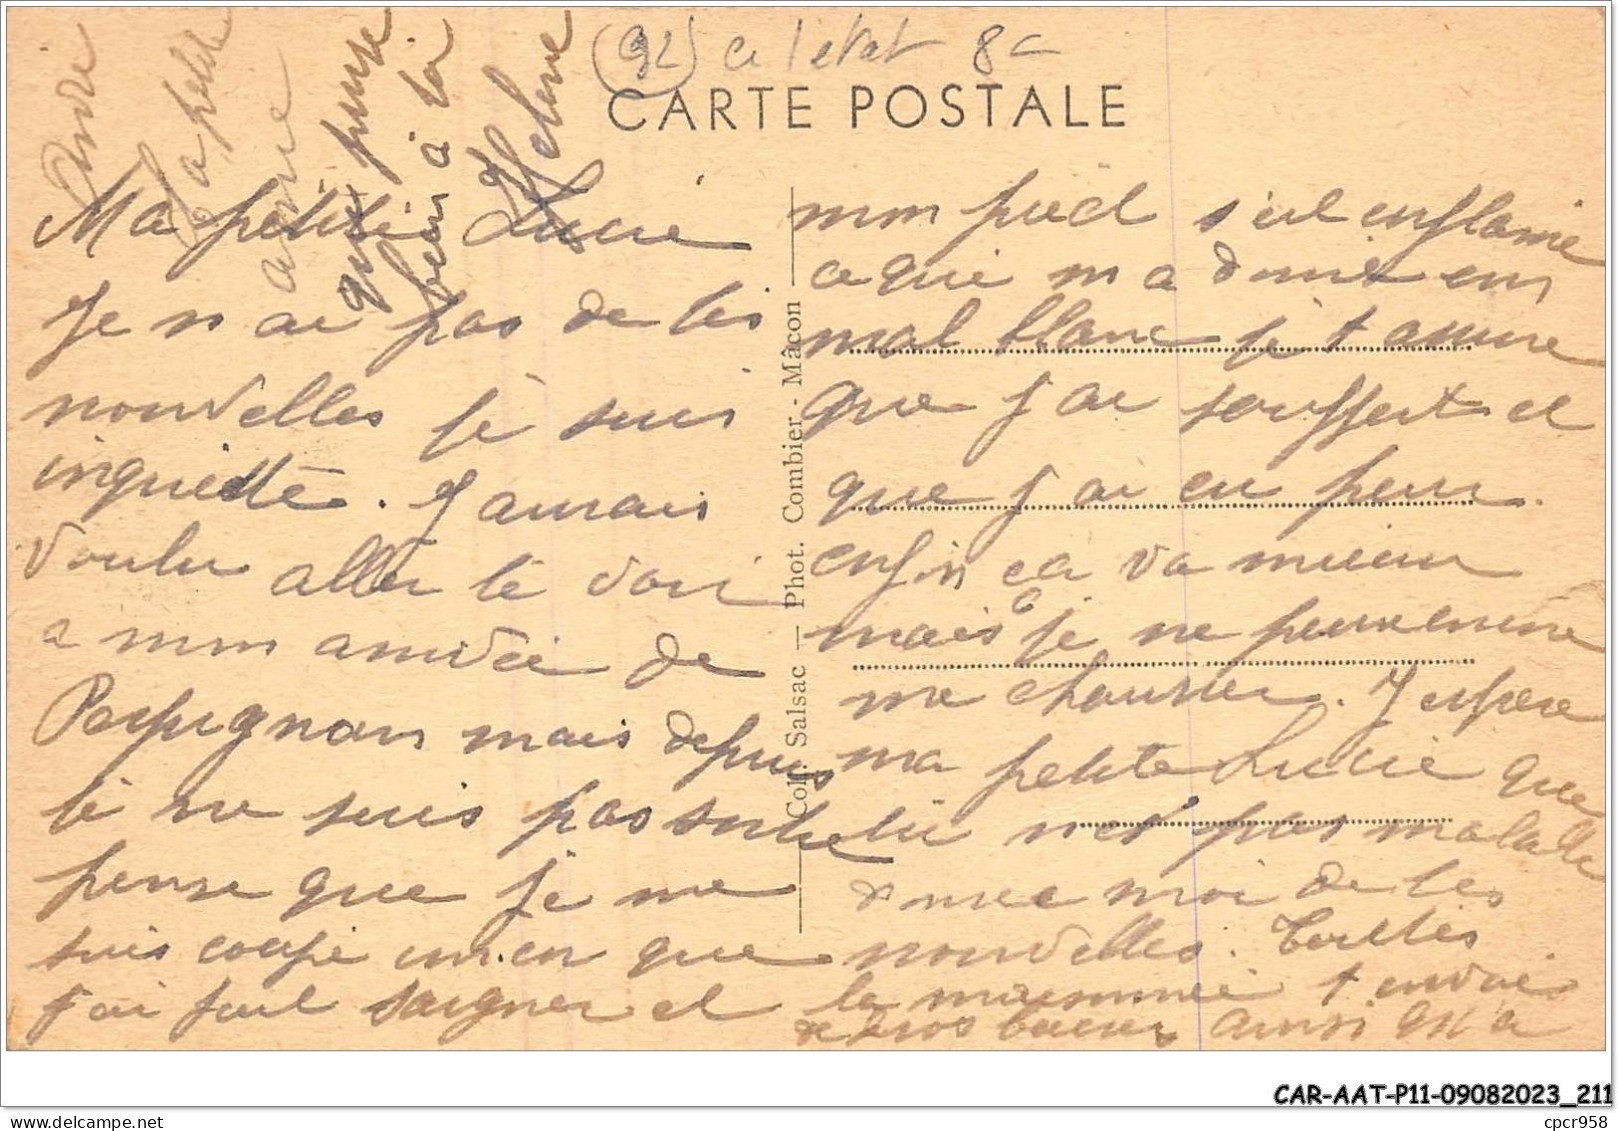 (92) a l'etat 8c
CARTE POSTALE
Ma petite Lucie
Je n ai pas de tes
nouvelles je suis
inquiette. J aurais
voulu aller te voir
a mon arrivée de
Perpignan mais depuis
je ne suis pas sortie
pense que je me
suis coupé un cor que
j'ai fait saigner et
mon pied s'est enflamé
ce qui m a donné un
mal blanc je t assure
que j ai souffert et
que j ai eu peur.
enfin ça va mieux
mais je ne peux encore
me chausser. J espere
ma petite Lucie que
tu n'es pas malade
donne moi de tes
nouvelles. Toutes
la maisonnée t envoie
de gros baisers ainsi qu'a
André
La petite
amie
qui pense
bien à toi
Helene
Coll. Salsac — Phot. Combier - Mâcon
CAR-AAT-P11-09082023_211
cpcr958